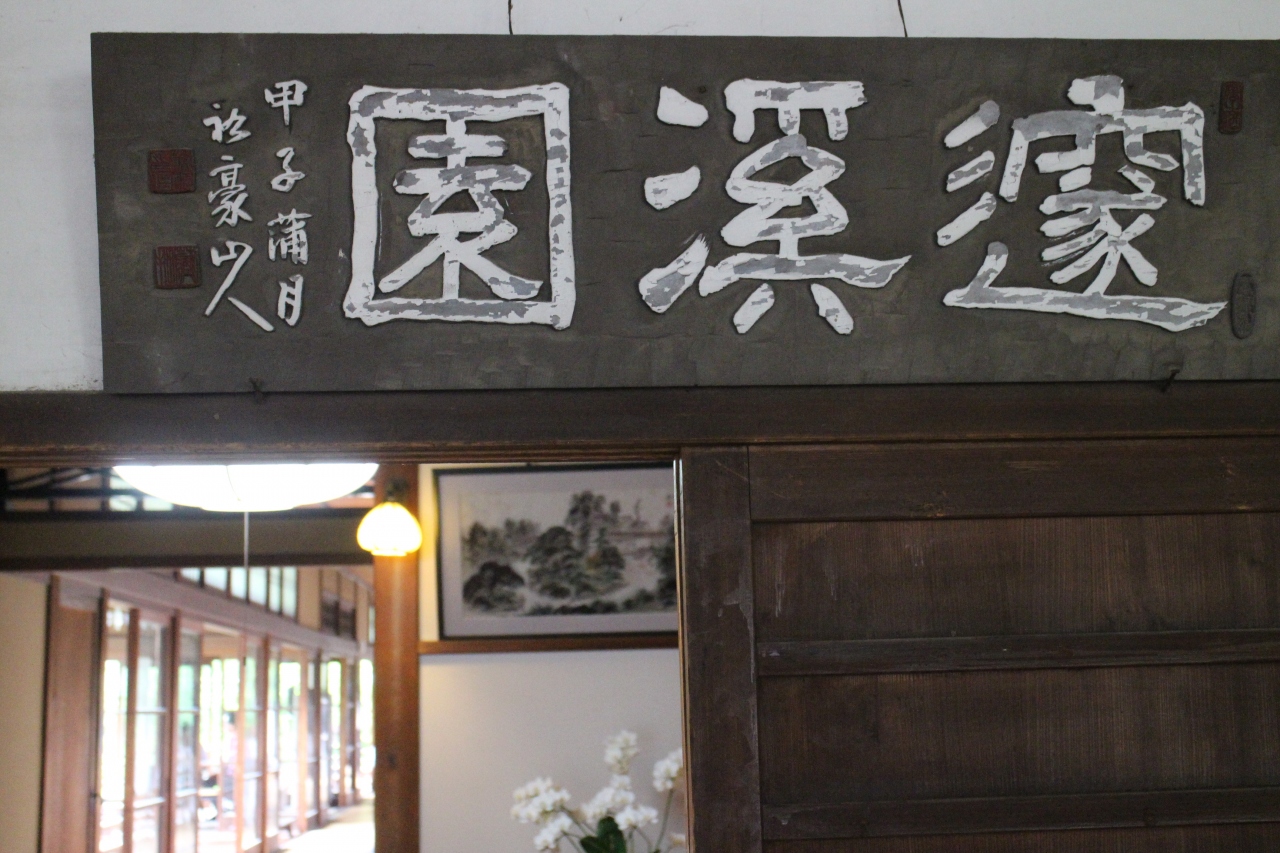 邃溪園
甲子蒲月
豪山人